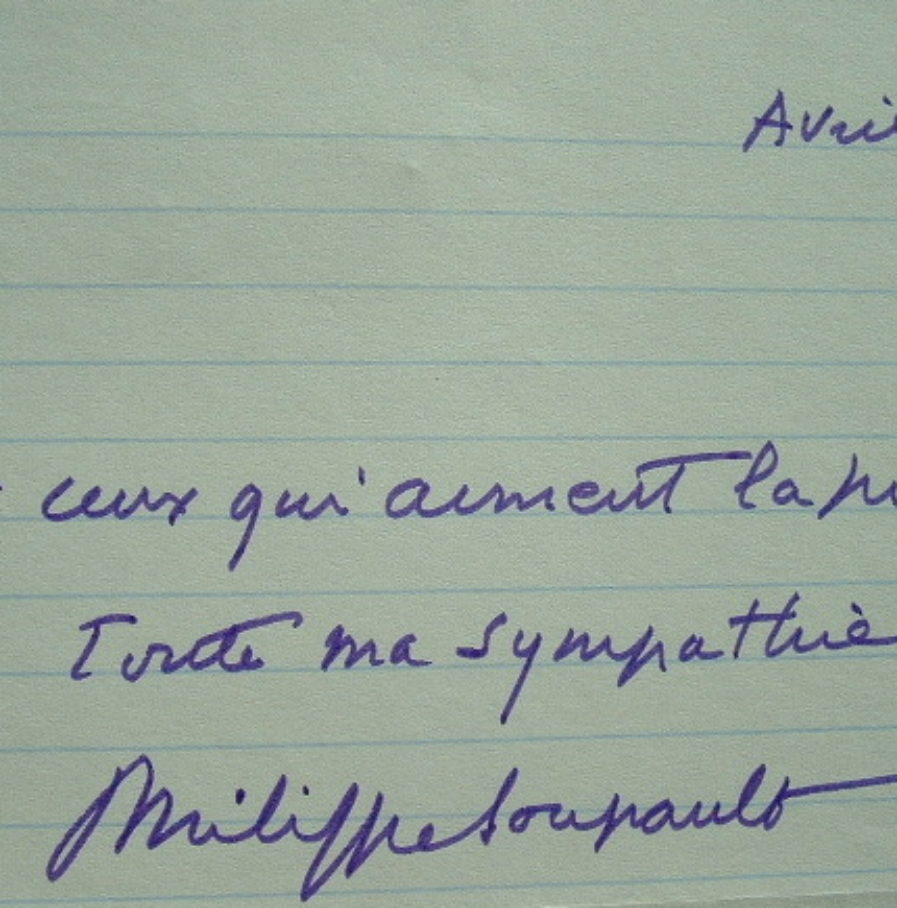 Avri
ceux qui aiment la
Toute ma sympathie
Philippe Soupault